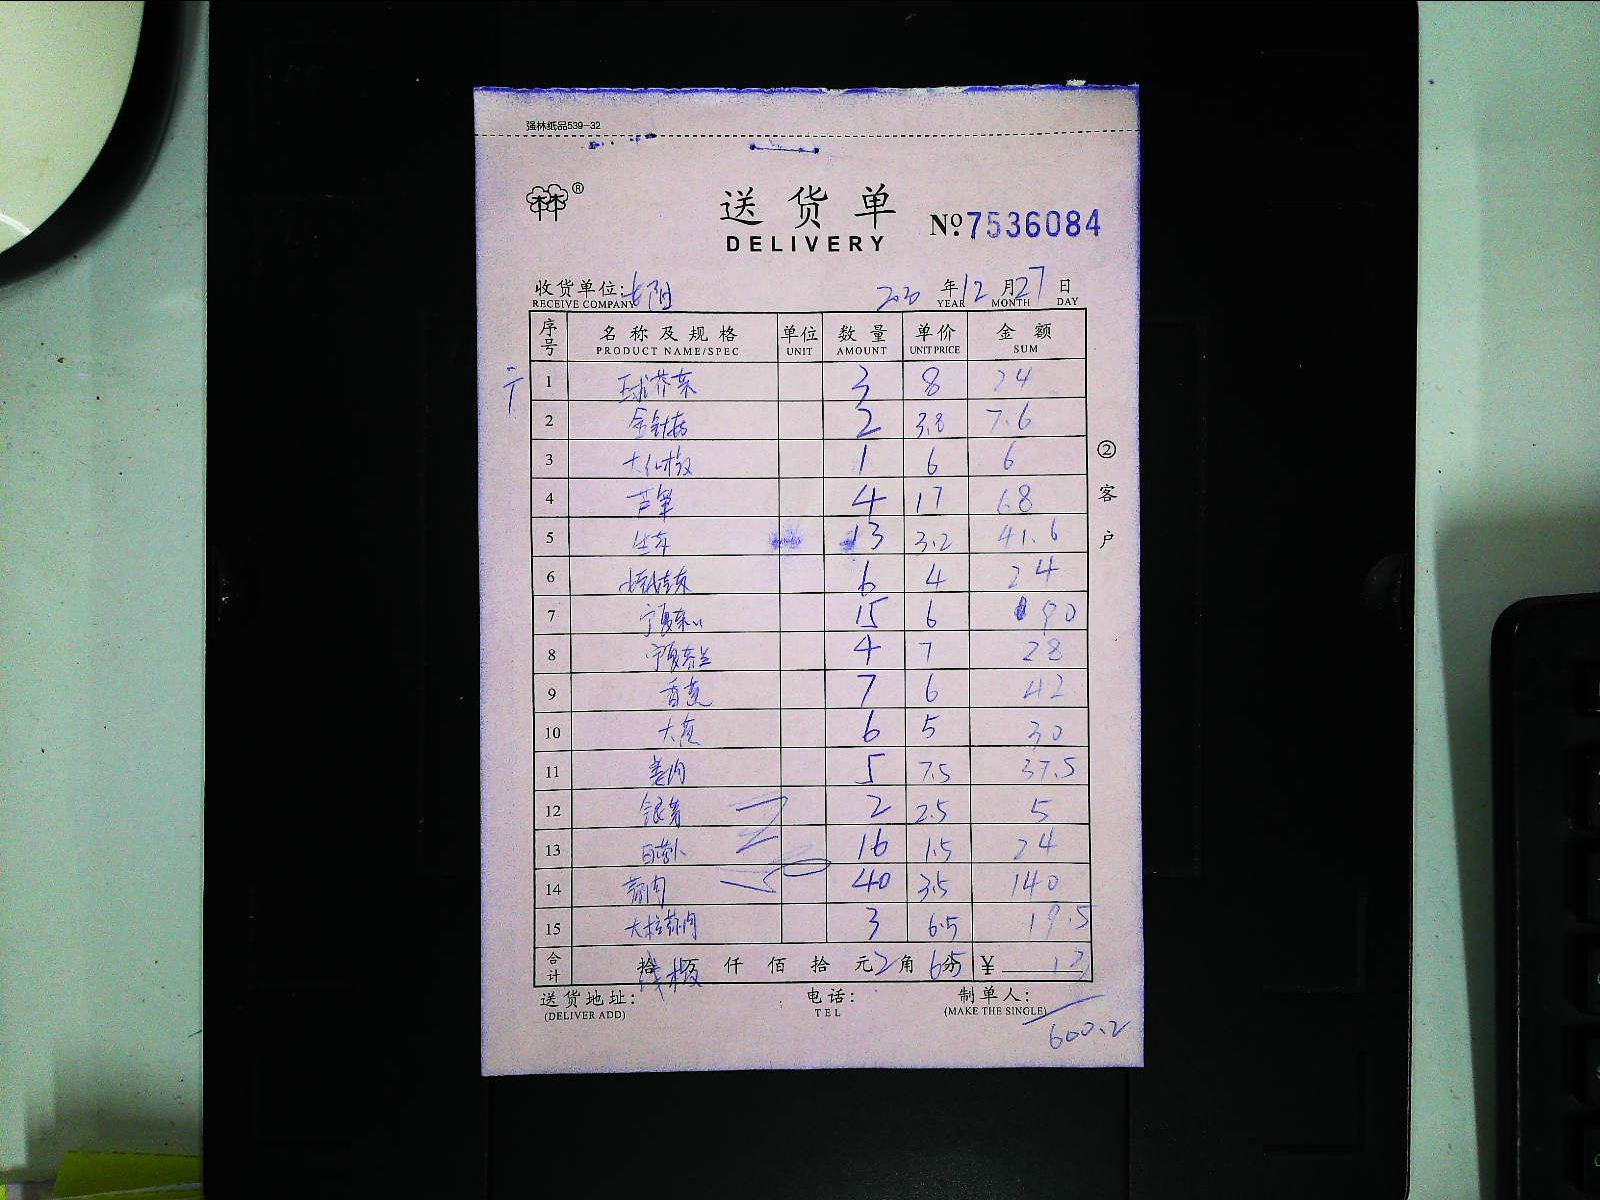 强林纸品539-32
林林®
送货单
DELIVERY
№7536084
收货单位: 长阳 2020 年 12 月 27 日
RECEIVE COMPANY YEAR MONTH DAY
序号 名称及规格 单位 数量 单价 金额
PRODUCT NAME/SPEC UNIT AMOUNT UNIT PRICE SUM
1 球芥菜 3 8 24
2 金针菇 2 3.8 7.6
3 1 6 6
4 芦笋 4 17 68
5 生菜 13 3.2 41.6
6 6 4 24
7 宁夏菜心 15 6 90
8 宁夏芥兰 4 7 28
9 香葱 7 6 42
10 大葱 6 5 30
11 姜肉 5 7.5 37.5
12 银芽 2 2.5 5
13 白萝卜 16 1.5 24
14 蒜肉 40 3.5 140
15 大粒蒜肉 3 6.5 19.5
合计 拾 万 仟 佰 拾 元 2 角 6.5 分 ¥ 13
②客户
送货地址: 电话: 制单人:
(DELIVER ADD) TEL (MAKE THE SINGLE)
600.2